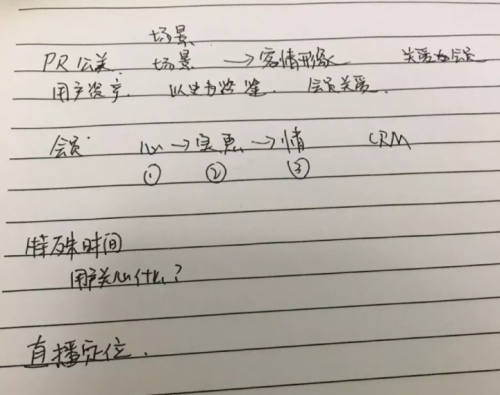 场景
PR公关 场景 →客情形象 关爱为会员
用户资产 以史为鉴 会员关爱
会员 心→实惠→情 CRM
① ② ③
特殊时间
用户关心什么?
直播定位.